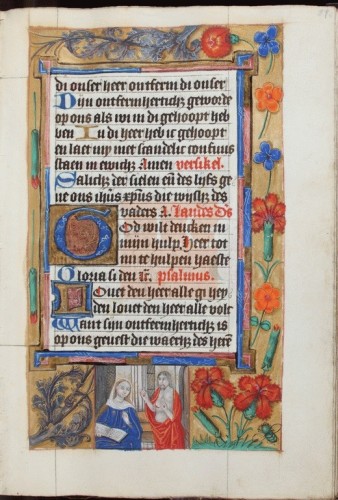 di onser heer ontferm di onser
Dijn ontfermherticheit geworde
op ons als wi in di gehoopt heb
ben In di heer heb ic gehoopt
en laet my niet scandelic confuus
staen in ewich Amen versikel
Salich der sielen en des lijfs ge
ne ons ihūs xp̄us die wijsh des
vaders A. Laudes Ds
God wilt dencken in
mijn hulp. Heer tot
mi te hulpen haeste
Gloria si den psalmus.
Louet den heer alle gi hey
den louet den heer alle volc
Want sijn ontfermherticheit is
op ons geuest die waerh des heer